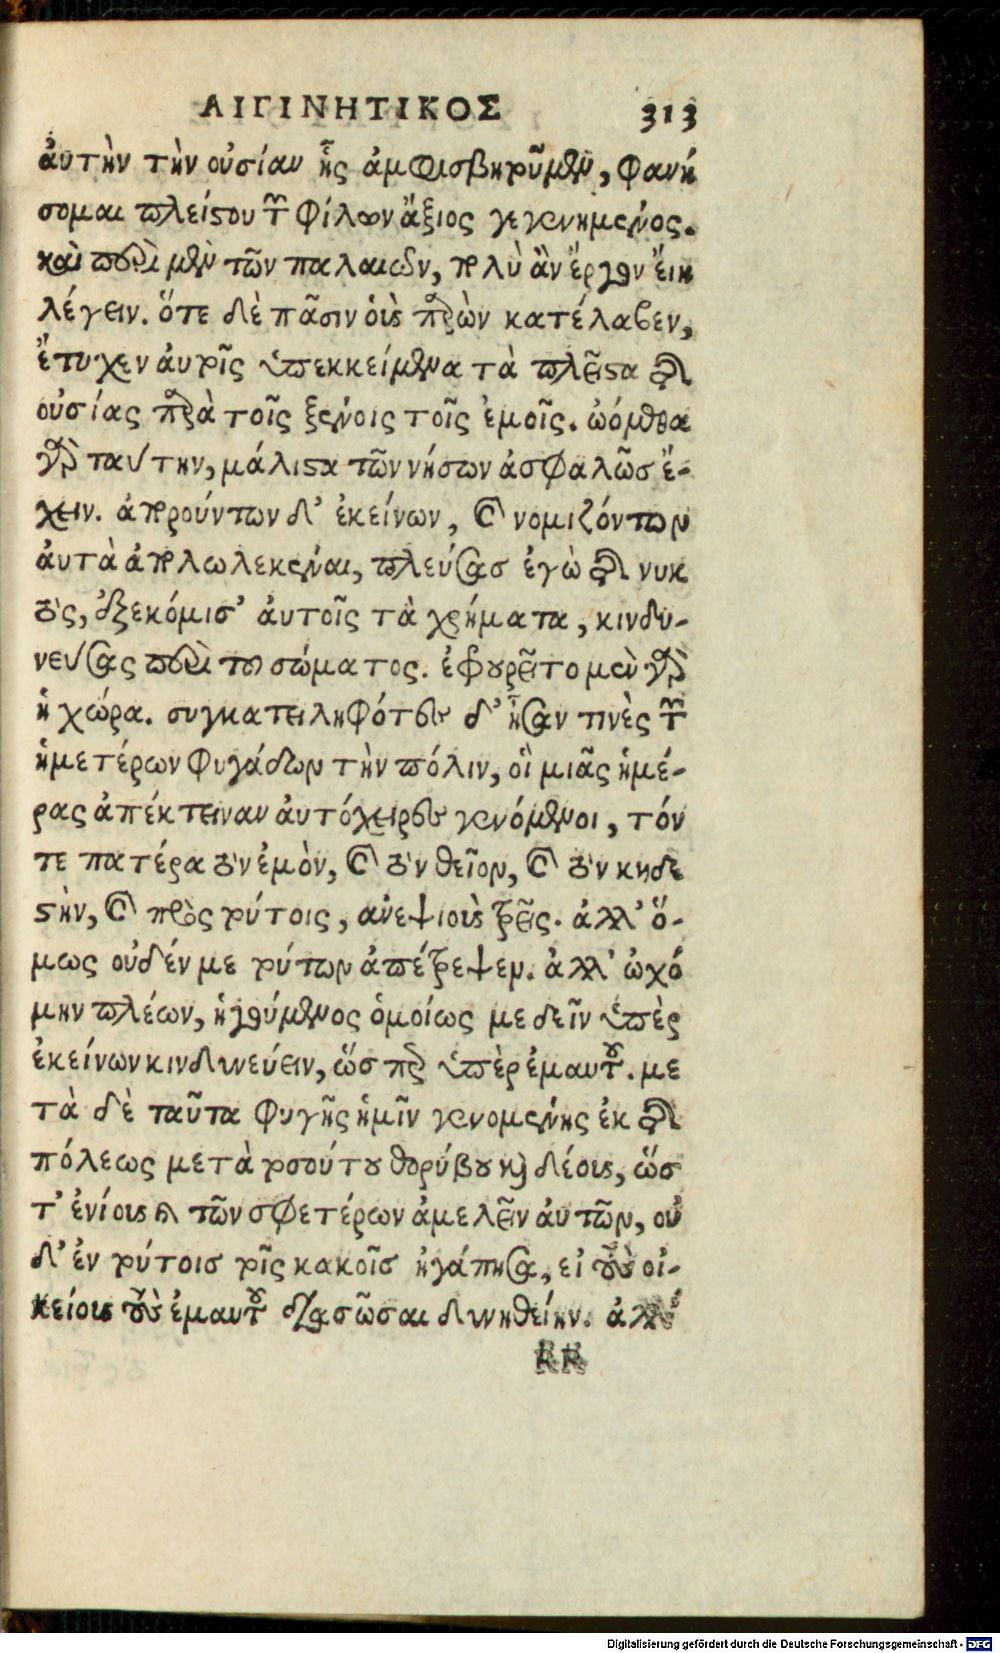 ΑΙΓΙΝΗΤΙΚΟΣ 313
ἀυτὴν τὴν οὐσίαν ἧς ἀμφισβητοῦμεν, φανή
σομαι πλείστου τῶν φίλων ἄξιος γεγενημένος.
καὶ περὶ μὲν τῶν παλαιῶν, πολὺ ἂν ἔργον εἴη
λέγειν. ὅτε δὲ πᾶσιν ὁὺς παρὼν κατέλαβεν,
ἔτυχεν ἀυτοῖς ὑπεκκείμενα τὰ πλεῖστα τῆς
οὐσίας παρὰ τοῖς ξένοις τοῖς ἐμοῖς. ὠόμεθα
γὰρ ταύτην, μάλιστα τῶν νήσων ἀσφαλῶσ ἔ-
χειν. ἀπορούντων δ' ἐκείνων, καὶ νομιζόντων
ἀυτὰ ἀπολωλεκέναι, πλεύσασ ἐγὼ τῆς νυκ
τὸς, ἐξεκόμισ' ἀυτοῖς τὰ χρήματα, κινδυ-
νεύσας περὶ του σώματος. ἐφρουρεῖτο μὲν γὰρ
ἡ χώρα. συγκατειληφότες δ' ἦσαν τινὲς τῶν
ἡμετέρων φυγάδων τὴν πόλιν, οἳ μιᾶς ἡμέ-
ρας ἀπέκτειναν ἀυτόχειρες γενόμενοι, τόν
τε πατέρα τὸν ἐμὸν, καὶ τὸν θεῖον, καὶ τὸν κηδε
στὴν, καὶ πρὸς τούτοις, ἀνεψιοὺς τρεῖς. ἀλλ' ὅ-
μως οὐδέν με τούτων ἀπέτρεψεν. ἀλλ' ὠχό
μην πλέων, ἡγούμενος ὁμοίως με δεῖν ὑπὲρ
ἐκείνων κινδυνεύειν, ὥσπερ ὑπὲρ ἐμαυτοῦ. με
τὰ δὲ ταῦτα φυγῆς ἡμῖν γενομένης ἐκ τῆς
πόλεως μετὰ τοσούτου θορύβου καὶ δέους, ὥσ
τ' ἐνίους καὶ τῶν σφετέρων ἀμελεῖν ἀυτῶν, οὐ
δ' ἐν τούτοισ τοῖς κακοῖσ ἠγάπησα, εἰ τοὺς οἰ-
κείους τοὺς ἐμαυτοῦ διασῶσαι δυνηθείην. ἀλλ'
RR
Digitalisierung gefördert durch die Deutsche Forschungsgemeinschaft - DFG